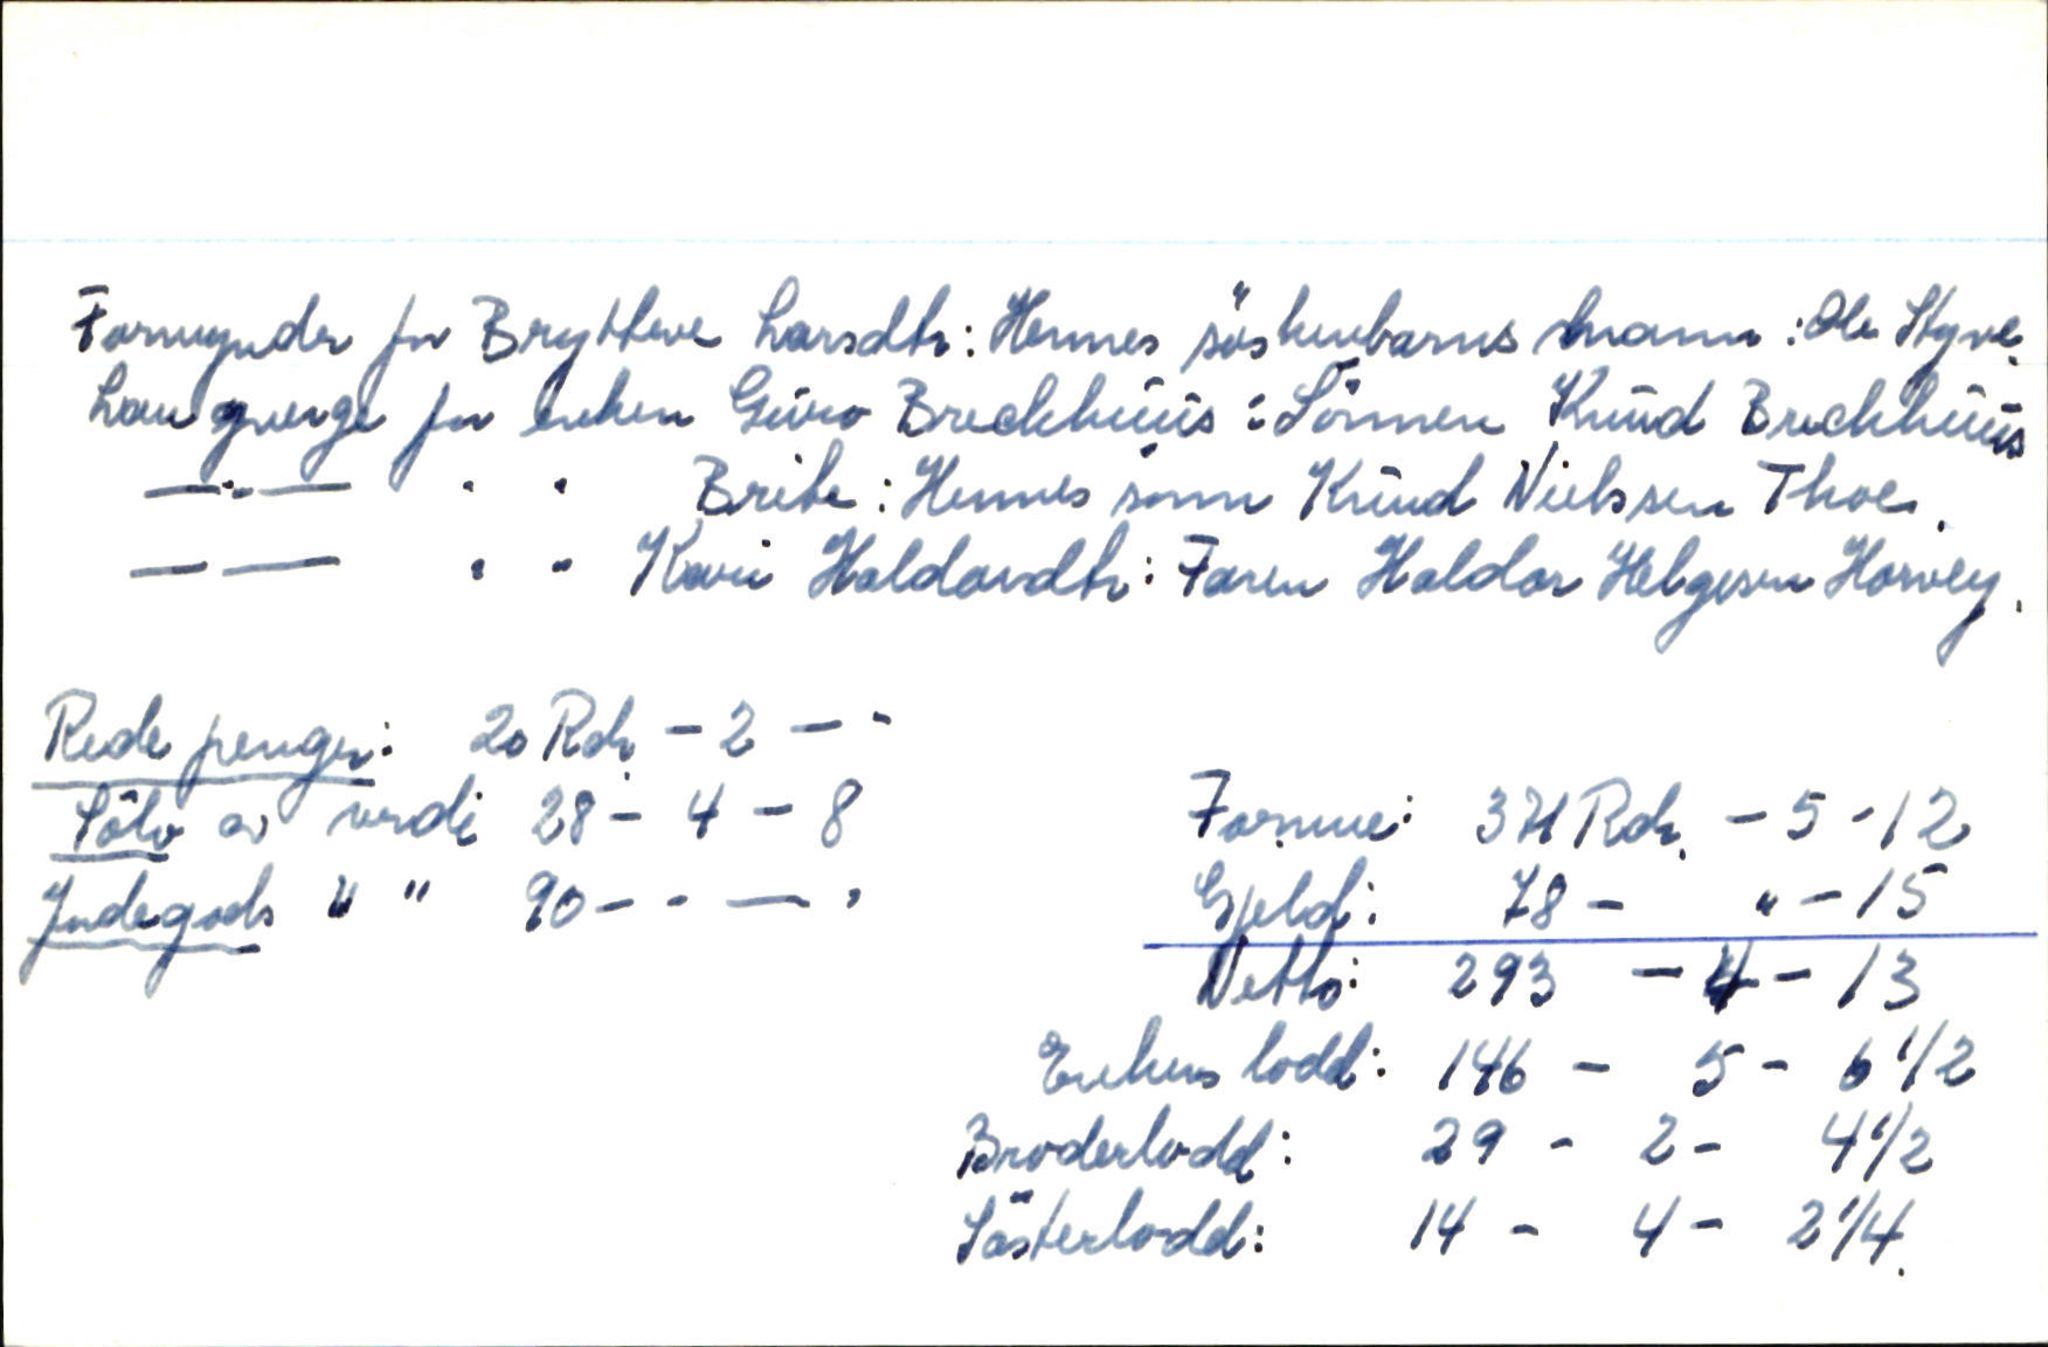 Formynder for Brytteve Larsdtr: Hennes söskenbarns mann: Ole Styve.
Laugverge for enken Gúro Breckhúús: Sönnen Knúd Breckhúús
—"— " " Brite: Hennes sönn Knúd Nielssen Thoe.
— — " " Kari Haldordtr: Faren Haldor Helgesen Horvey.
Rede penger: 20 Rdr. - 2 - -
Sölv av verdi 28 - 4 - 8
Jordegods " " 90 - - — "
Formue: 371 Rdr. - 5 - 12
Gjeld: 78 - " - 15
Netto: 293 - 4 - 13
Enkens lodd: 146 - 5 - 6 1/2
Broderlodd: 29 - 2 - 4 1/2
Sösterlodd: 14 - 4 - 2 1/4.